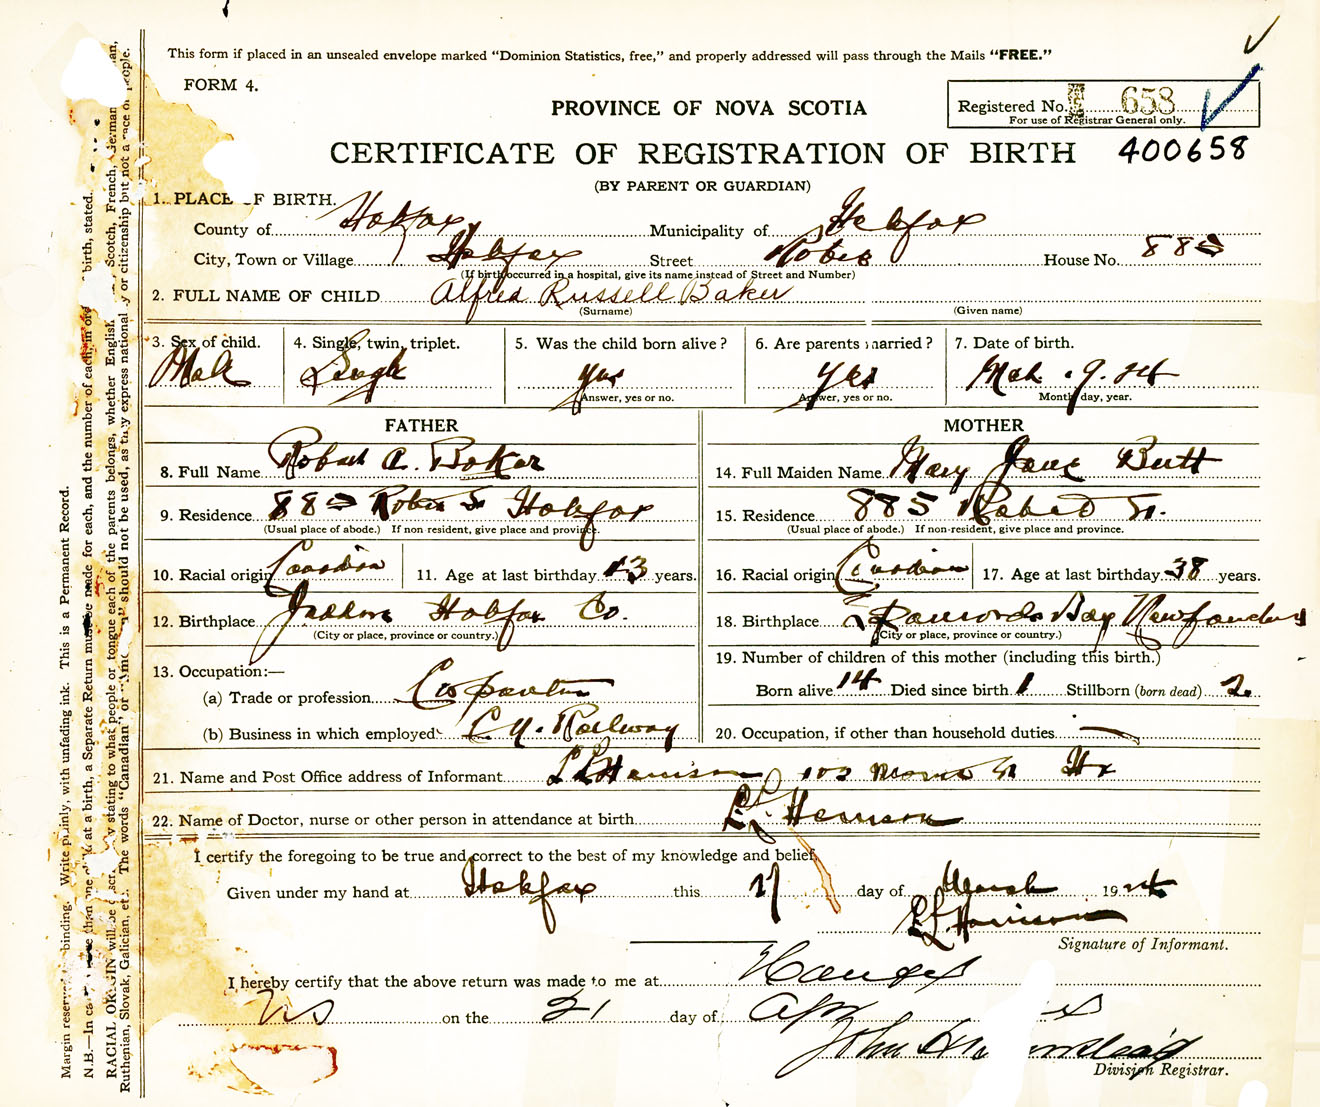 This form if placed in an unsealed envelope marked “Dominion Statistics, free,” and properly addressed will pass through the Mails “FREE.”
FORM 4.
PROVINCE OF NOVA SCOTIA
Registered No. 658
For use of Registrar General only.
CERTIFICATE OF REGISTRATION OF BIRTH 400658
(BY PARENT OR GUARDIAN)
1. PLACE OF BIRTH.
County of Halifax Municipality of Halifax
City, Town or Village Halifax Street Robie House No. 885
(If birth occurred in a hospital, give its name instead of Street and Number)
2. FULL NAME OF CHILD Alfred Russell Baker
(Surname) (Given name)
3. Sex of child. 4. Single, twin, triplet. 5. Was the child born alive? 6. Are parents married? 7. Date of birth.
Male Single yes yes Mch. 9. 24
Answer, yes or no. Answer, yes or no. Month, day, year.
FATHER MOTHER
8. Full Name Robert A. Baker 14. Full Maiden Name Mary Jane Butt
9. Residence 885 Robie St Halifax 15. Residence 885 St.
(Usual place of abode.) If non resident, give place and province. (Usual place of abode.) If non-resident, give place and province.
10. Racial origin Canadian 11. Age at last birthday 43 years. 16. Racial origin Canadian 17. Age at last birthday 38 years.
12. Birthplace Halifax Co. 18. Birthplace Bay Newfoundland
(City or place, province or country.) (City or place, province or country.)
13. Occupation:— 19. Number of children of this mother (including this birth.)
(a) Trade or profession Carpenter Born alive 14 Died since birth 1 Stillborn (born dead) 2
(b) Business in which employed C.N. Railway 20. Occupation, if other than household duties
21. Name and Post Office address of Informant Harrison Hx
22. Name of Doctor, nurse or other person in attendance at birth Harrison
I certify the foregoing to be true and correct to the best of my knowledge and belief,
Given under my hand at Halifax this 17 day of March 1924
Harrison
Signature of Informant.
I hereby certify that the above return was made to me at Halifax
NS on the 21 day of Apr
John
Division Registrar.
Margin reserved binding. Write plainly, with unfading ink. This is a Permanent Record.
N.B.—In case more than one child at a birth, a Separate Return must be made for each, and the number of each, in order of birth, stated.
RACIAL ORIGIN will be described by stating to what people or tongue each of the parents belongs, whether English, Scotch, French, German,
Ruthenian, Slovak, Galician, etc. The words “Canadian” or should not be used, as they express nationality or citizenship but not a race or people.